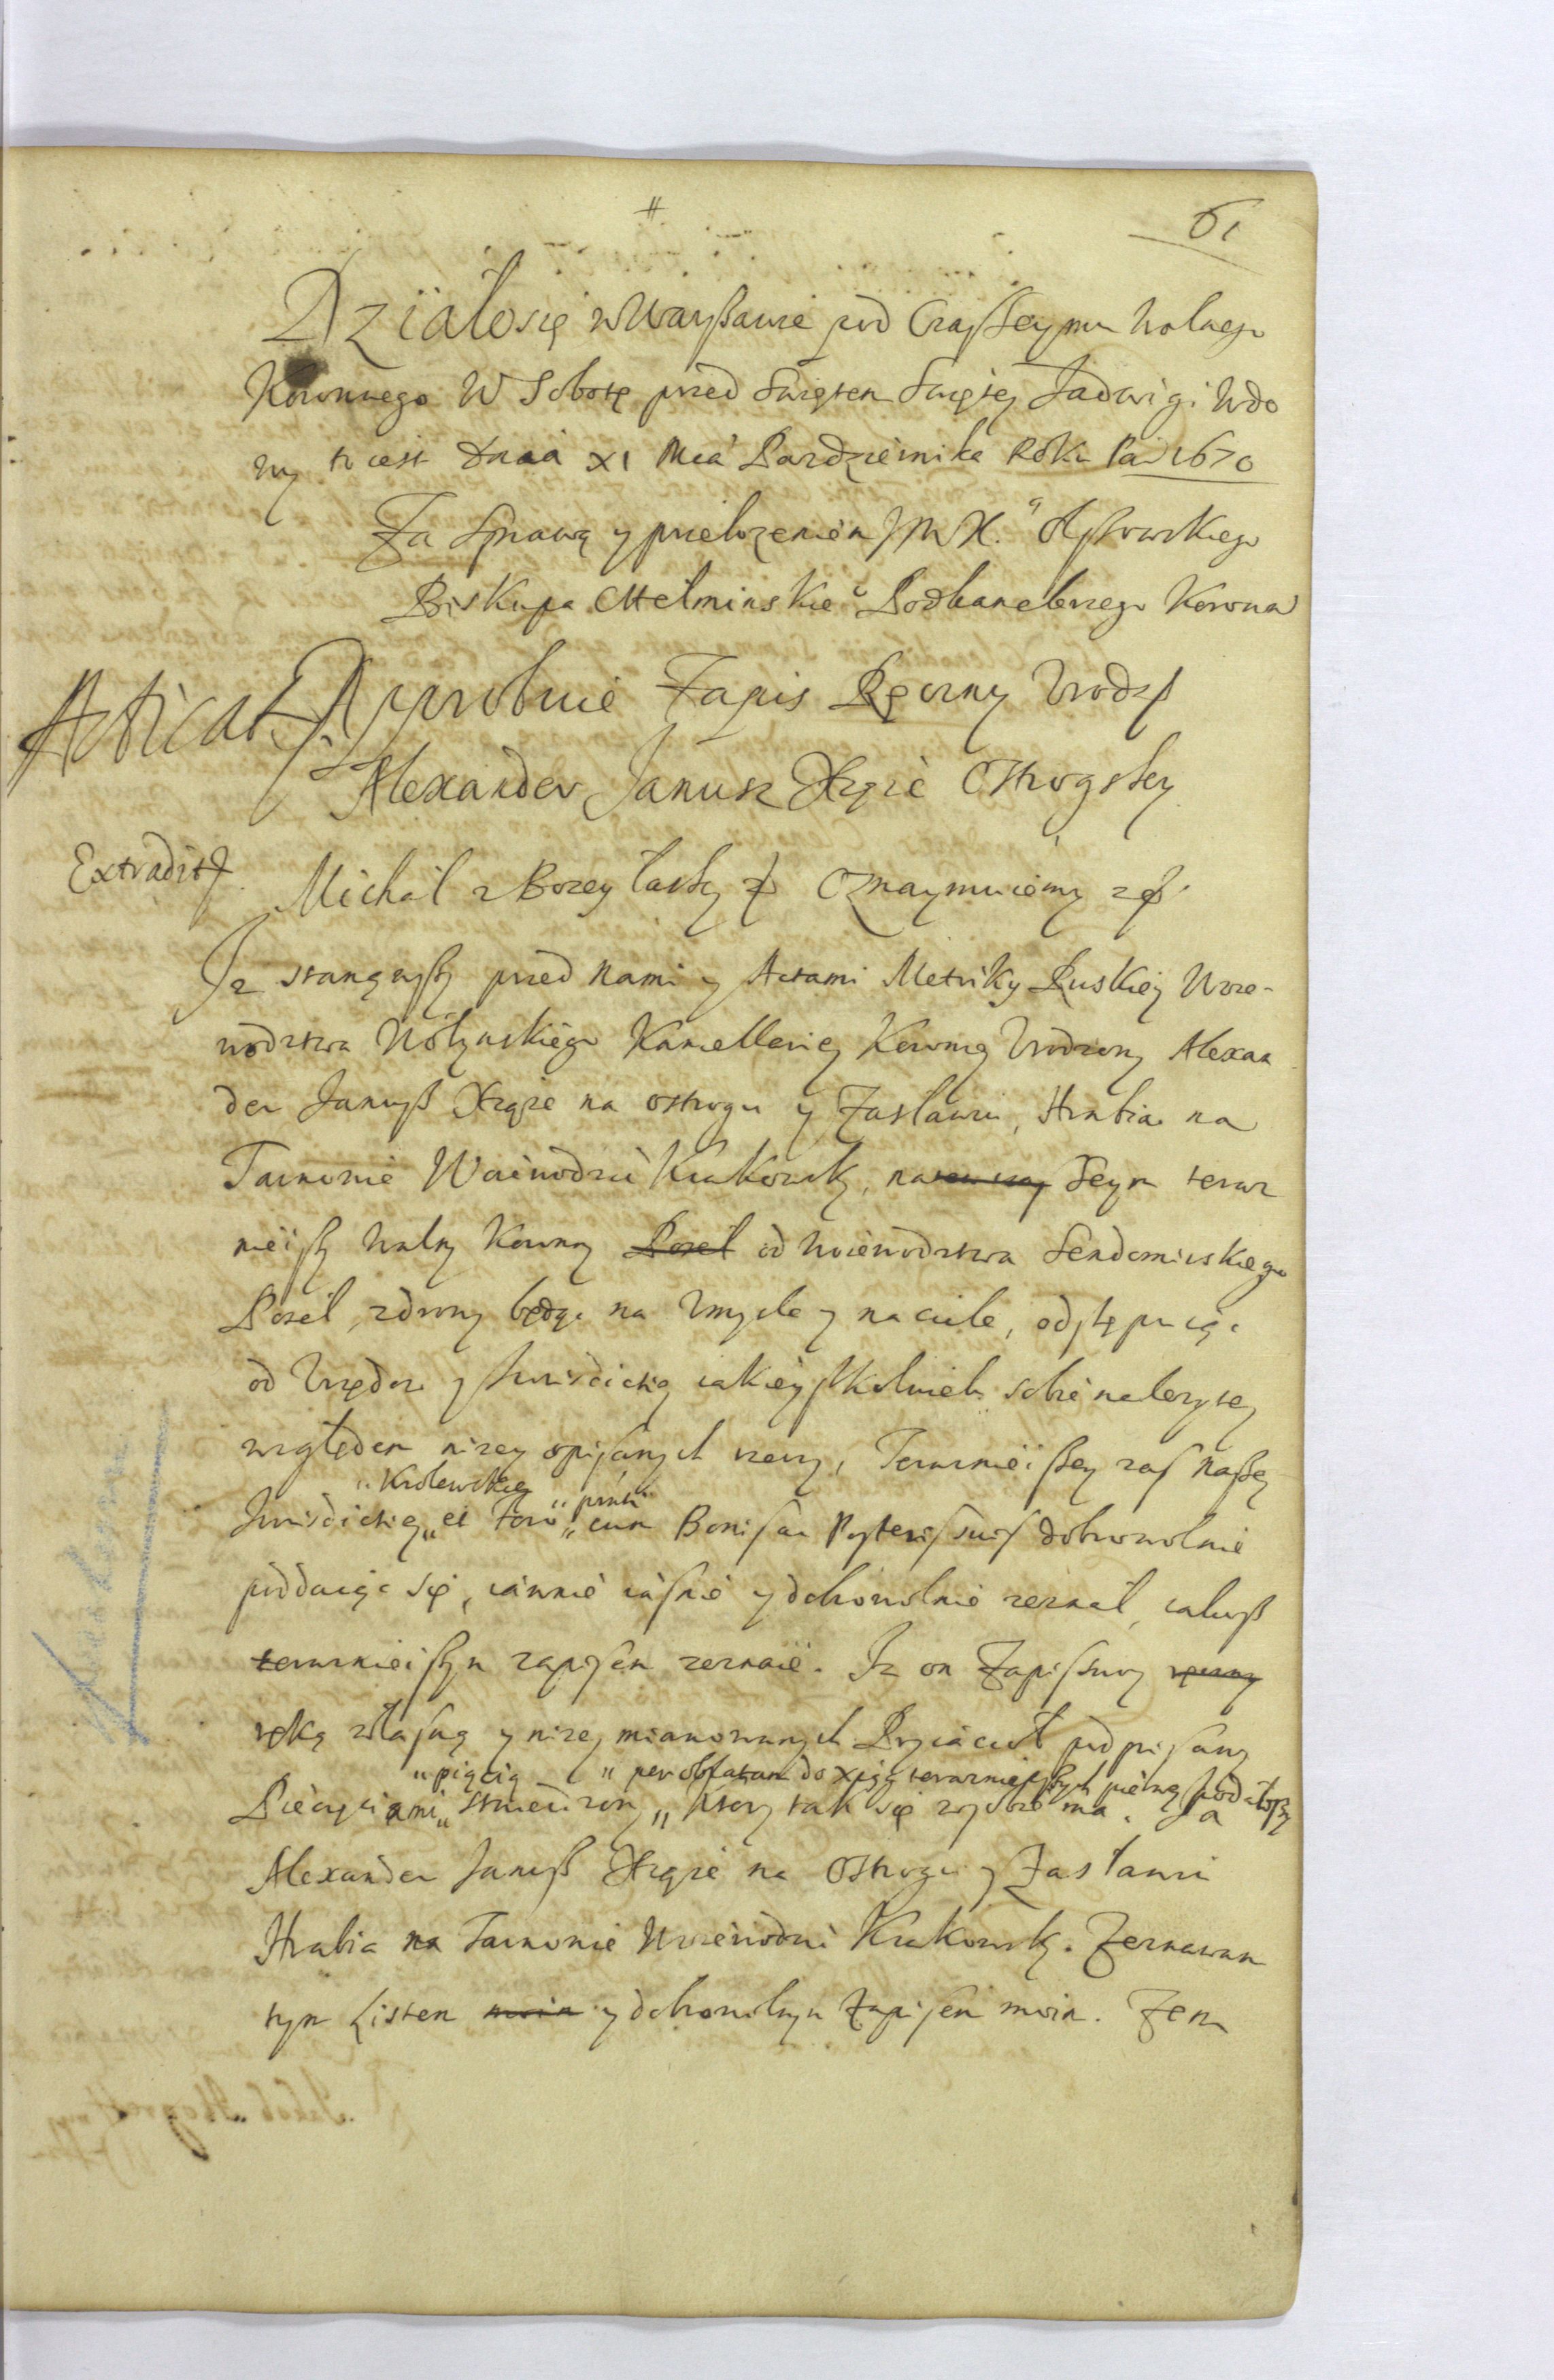 61
Działo się w Warszawie pod Czas Seymu Walnego
Koronnego W Sobotę przed Swiętem Swiętey Jadwigi Wdo
wy to iest Dnia XI Mca Pazdziernika Roku Pań 1670
Za Sprawą y przełozeniem JMX. Olszowskiego
Biskupa Chełminskieº Podkanclerzego Koronnº
Acticat.
Approbuie Zapis Ręczny Vrodzº
Alexander Janusz Xząze Ostrogsky
Extradit.
Michał z Bozey łasky & Oznaymuiemy &
Iz stanąwszy przed nami y Actami Metriky Ruskiey Woie-
wodztwa Wołynskiego Kancellariey Koronney Vrodzony Alexan
der Janusz Xząze na Ostrogu y Zasławiu, Hrabia na
Tarnowie Woiewodzic Krakowsky, na Seym teraz
nieiszy Walny Koronny Poseł od Woiewodztwa Sendomirskiego
Poseł, zdrowy będąc na Vmysle y na ciele, odstępuiąc
od Vrzędu y Jurisdictiey iakieyszkolwiek sobie nalezytey
względem nizey opisanych rzeczy, Terazniejszey zas naszey
"Krolewskiey "
Jurisdictiey " et Foro " cum Bonis ac Posteris suis dobrowolnie
poddaiąc się, iawnie iasnie y dobrowolnie zeznał, iakosz
terazniejszym zapisem zeznaie. Iz on Zapis swoy ręczny
ręką własną y nizey mianowanych Przyiacioł podpisany
"pięcią " per oblatam do Xiąg terazniejszych podał
Pieczęciami " stwierdzony " ktory tak się w sobie ma. Ja
Alexander Janusz Xząze na Ostrogu y Zasławiu
Hrabia na Tarnowie Woiewodzic Krakowsky. Zeznawam
tym Listem moim y dobrowolnym Zapisem moim. Zem